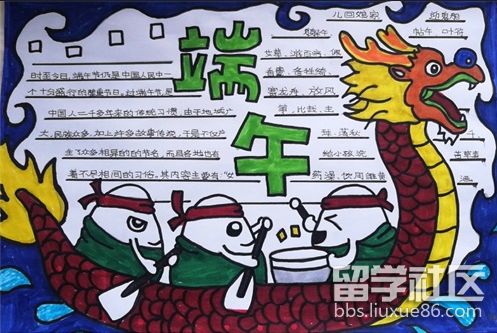 端午
时至今日,端午节仍是中国人民中一
个十分盛行的隆重节日。过端午节,是
中国人二千多年来的传统习惯,由于地域广
大,民族众多,加上许多故事传说,于是不仅产
生了众多相异的节名,而且各地也有
着不尽相同的习俗。其内容主要有:女
儿回娘家
帖午、叶符
艾草、游百病、佩
香囊、备牲醴、
赛龙舟、放风
筝、比武、击
球、荡秋
给小孩涂
药酒、饮用雄黄
菖蒲
酒
留学社区
bbs.liuxue86.com